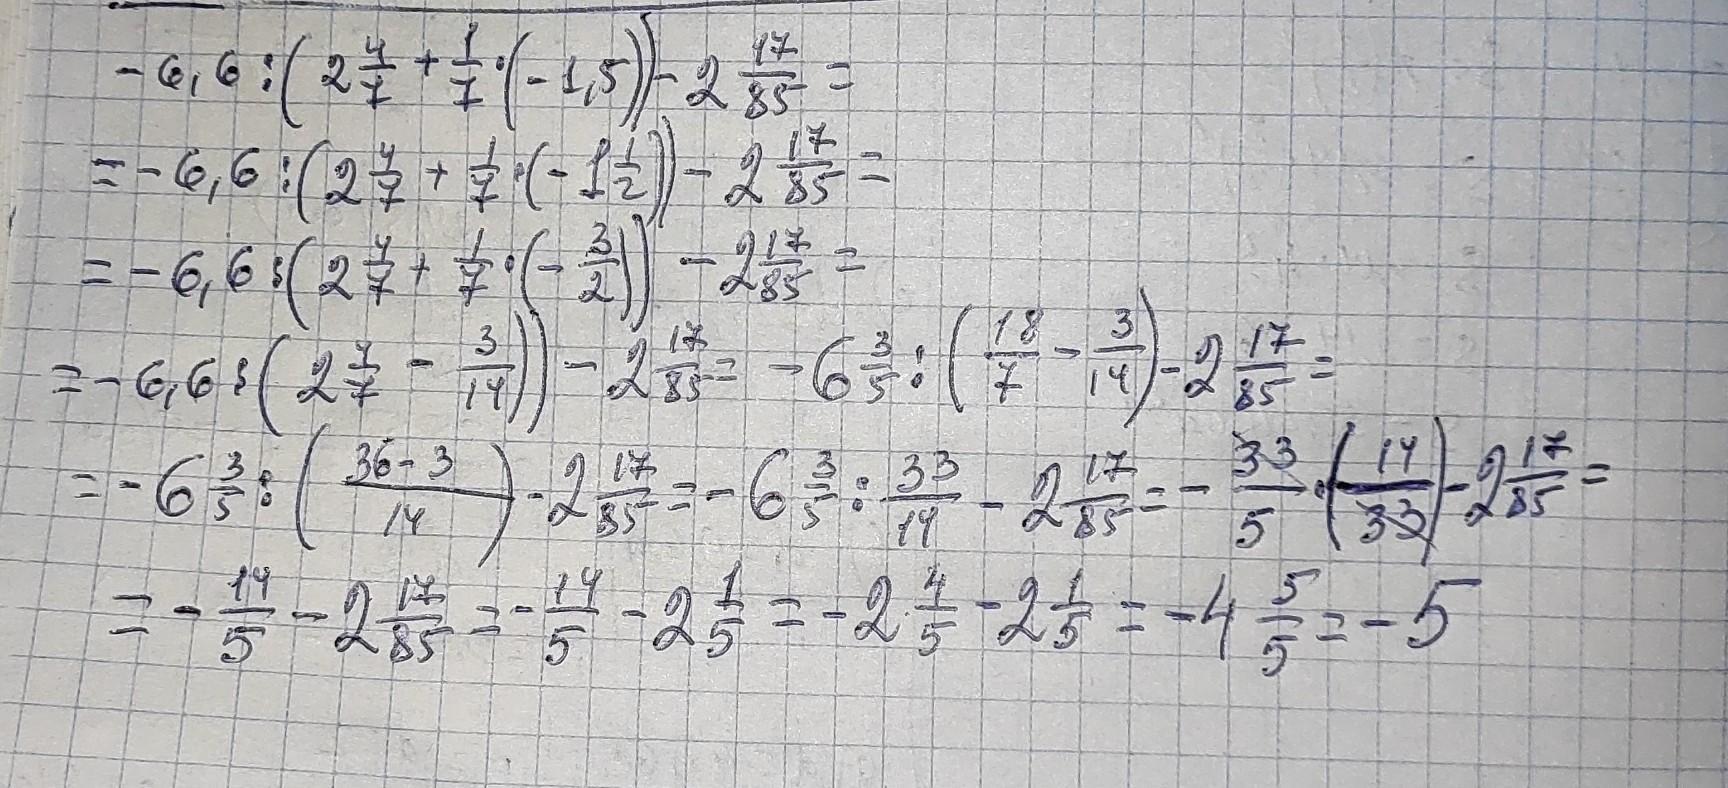 -6,6:(2 4/7 + 1/7·(-1,5))-2 17/85=
=-6,6:(2 4/7 + 1/7·(-1 1/2))-2 17/85=
=-6,6:(2 4/7 + 1/7·(-3/2))-2 17/85=
=-6,6:(2 4/7 - 3/14))-2 17/85=-6 3/5:(18/7 - 3/14)-2 17/85=
=-6 3/5:((36-3)/14)-2 17/85=-6 3/5:33/14-2 17/85=-33/5·(14/33)-2 17/85=
=-14/5-2 17/85=-14/5-2 1/5=-2 4/5-2 1/5=-4 5/5=-5